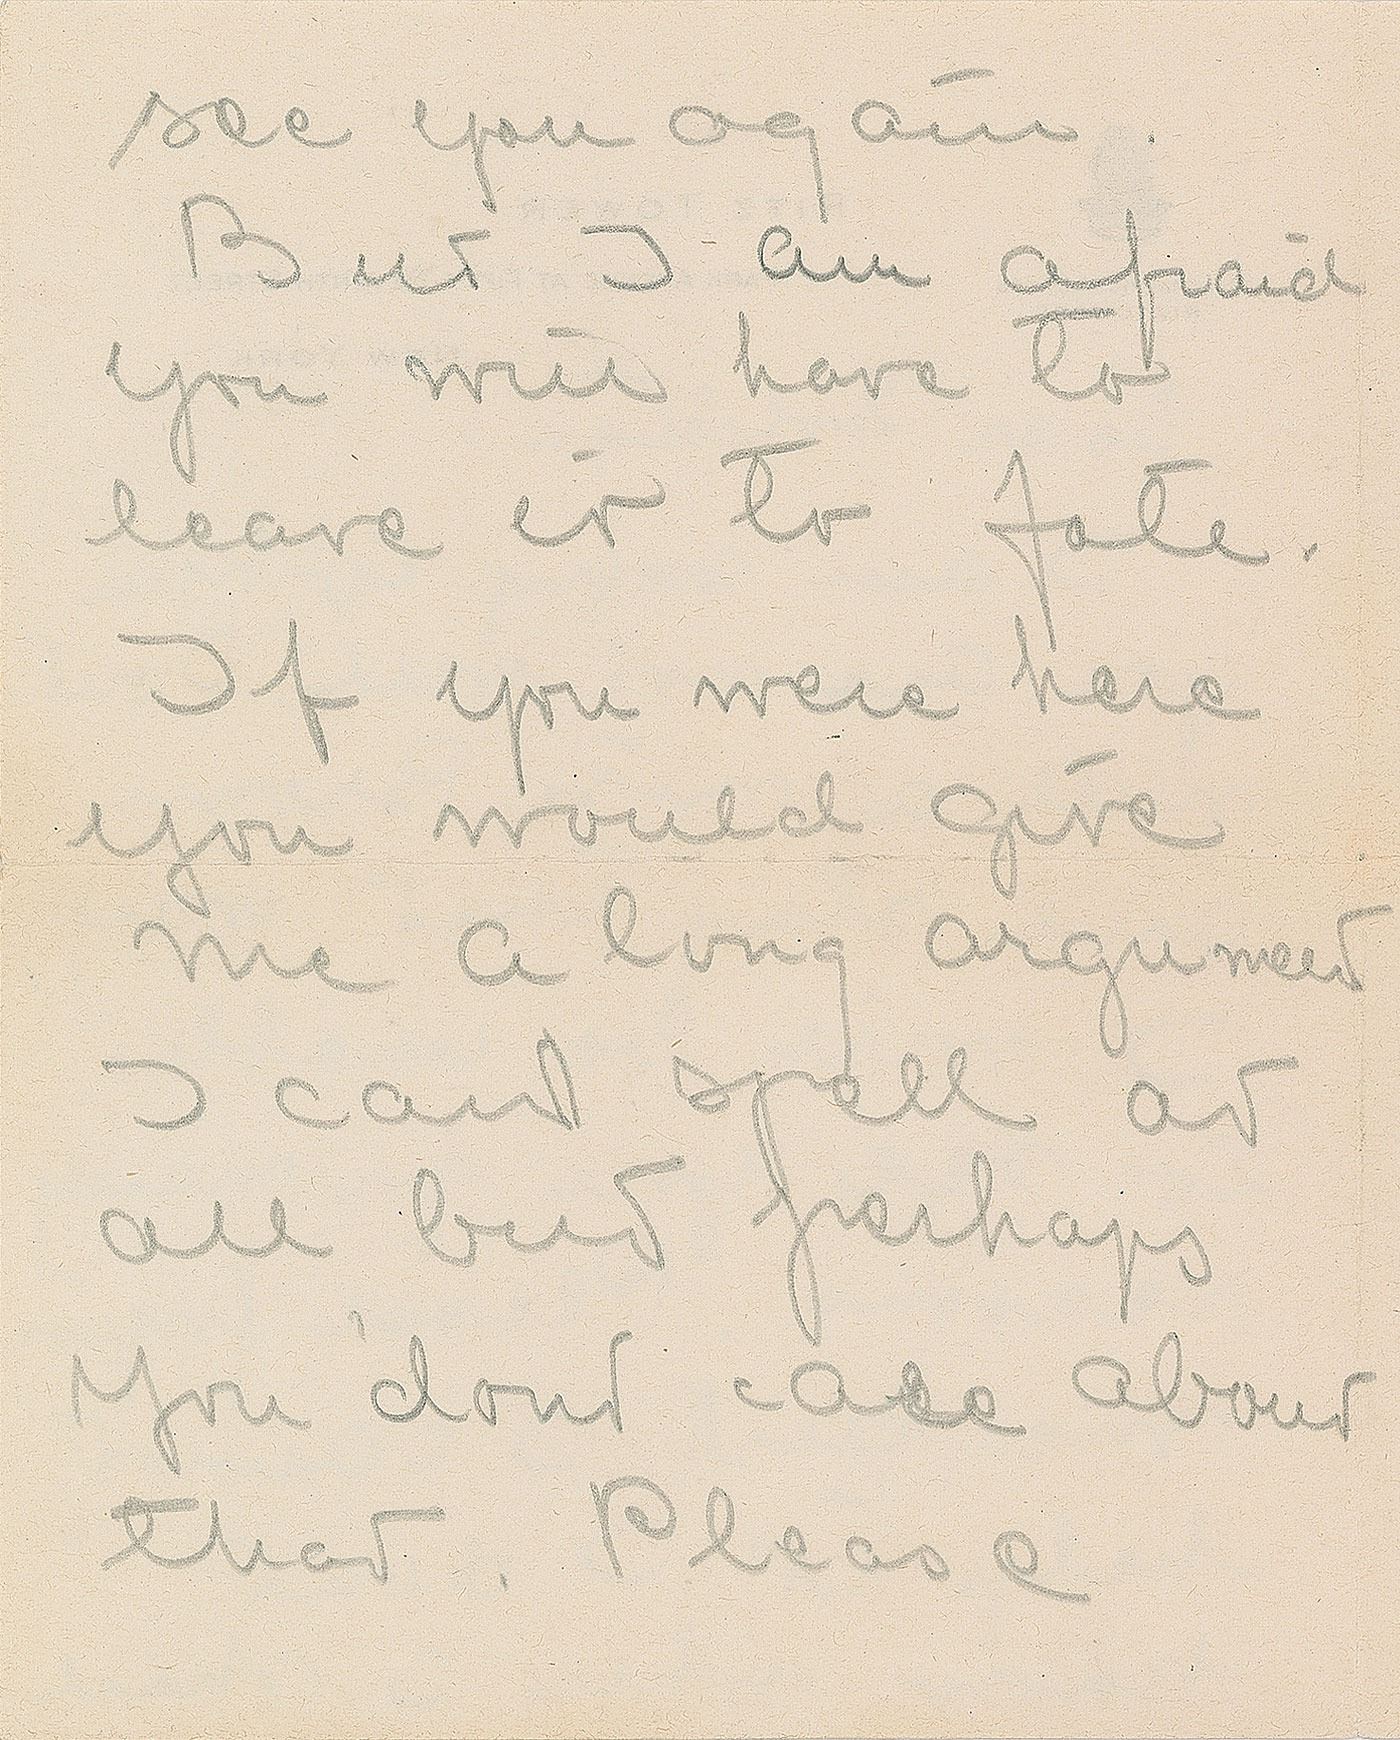 see you again.
But I am afraid
you will have to
leave it to fate.
If you were here
you would give
me a long argument
I cant spell at
all but perhaps
you dont care about
that. Please